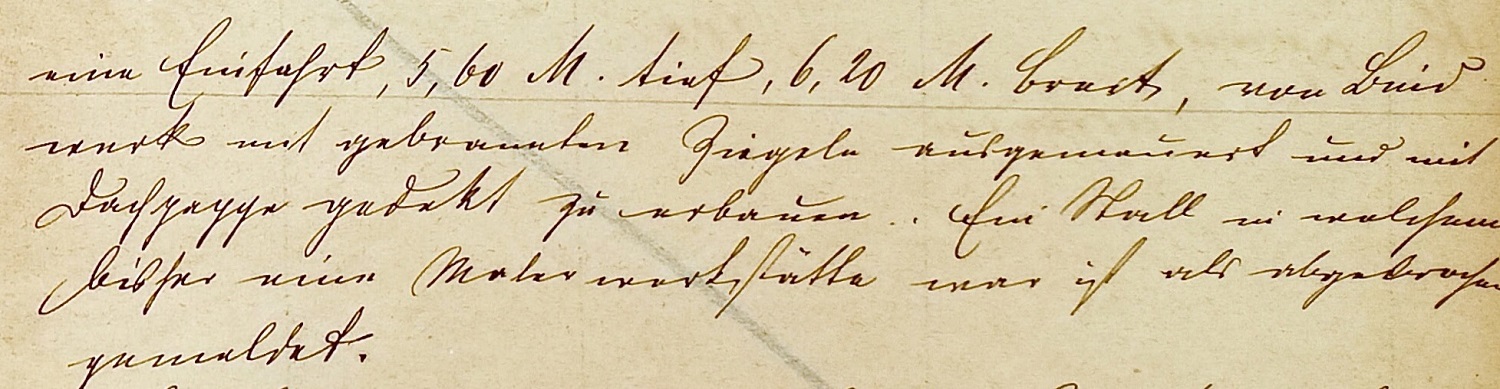 eine Einfahrt, 5,60 M. tief, 6,20 M. breit, von Bind
werk mit gebrannten Ziegeln ausgemauert und mit
Dachpappe gedekt zu erbauen. Ein Stall in welchem
bisher eine Malerwerkstätte war ist als abgebrochen
gemeldet.